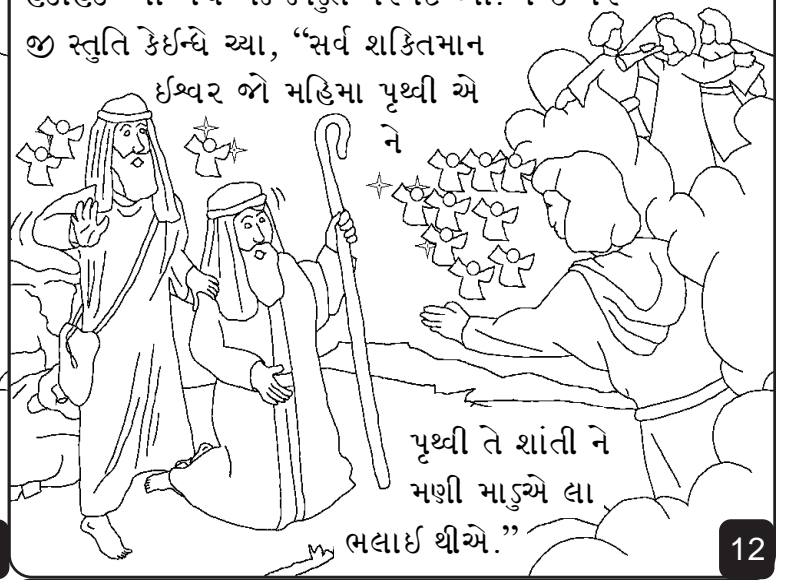 જી સ્તુતિ કેઈન્ધે ચ્યા, “સર્વ શકિતમાન
ઈશ્વર જો મહિમા પૃથ્વી એ
ને
પૃથ્વી તે શાંતી ને
મણી માડુએ લા
ભલાઈ થીએ.”
12